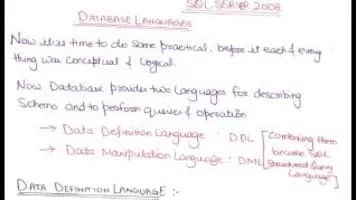 SQL SERVER 2008
DATABASE LANGUAGES
Now it is time to do some practical, before it each & every
thing was conceptual & Logical.
Now Database provides two Languages for describing
Schema and to perform queries & operation
→ Data Definition Language : DDL [Combining them
→ Data Manipulation Language : DML become SQL
Structured Query
Language]
DATA DEFINITION LANGUAGE :-